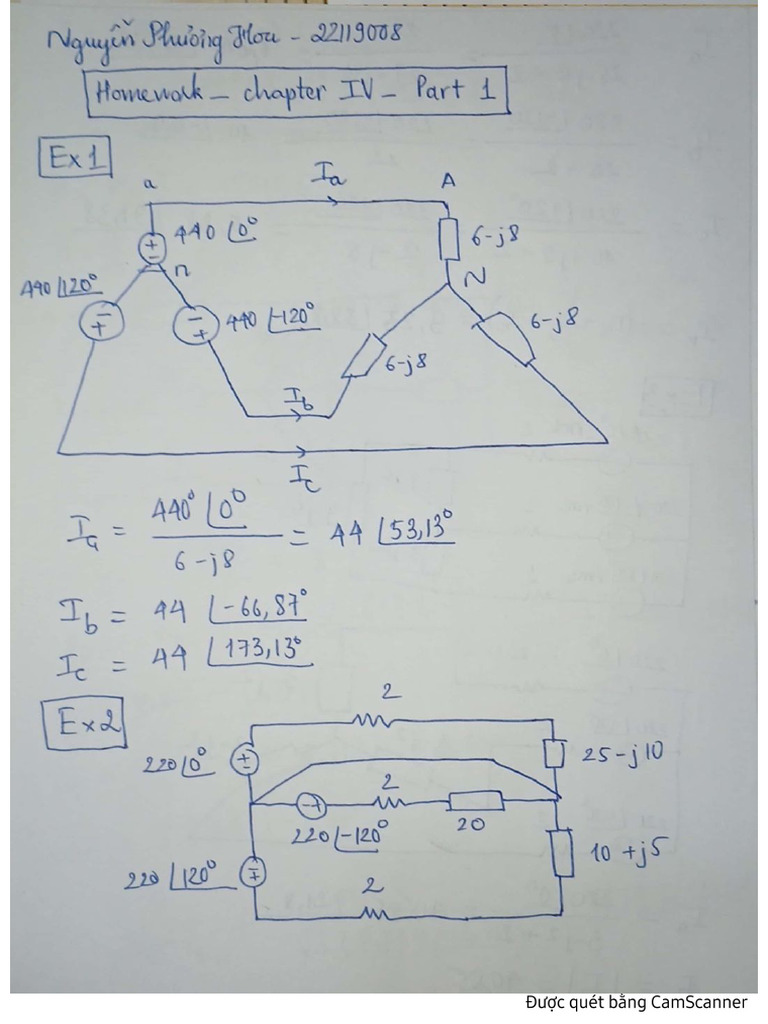 Nguyễn Phương Hoa - 22119008
Homework - chapter IV - Part 1
Ex1
a
Ia
A
440 ∠0°
6-j8
n
N
440 ∠120°
440 ∠-120°
6-j8
6-j8
Ib
Ic
Ia = 440° ∠0° / 6-j8 = 44 ∠53,13°
Ib = 44 ∠-66,87°
Ic = 44 ∠173,13°
Ex2
2
220∠0°
25-j10
2
220∠-120°
20
10+j5
220∠120°
2
Được quét bằng CamScanner